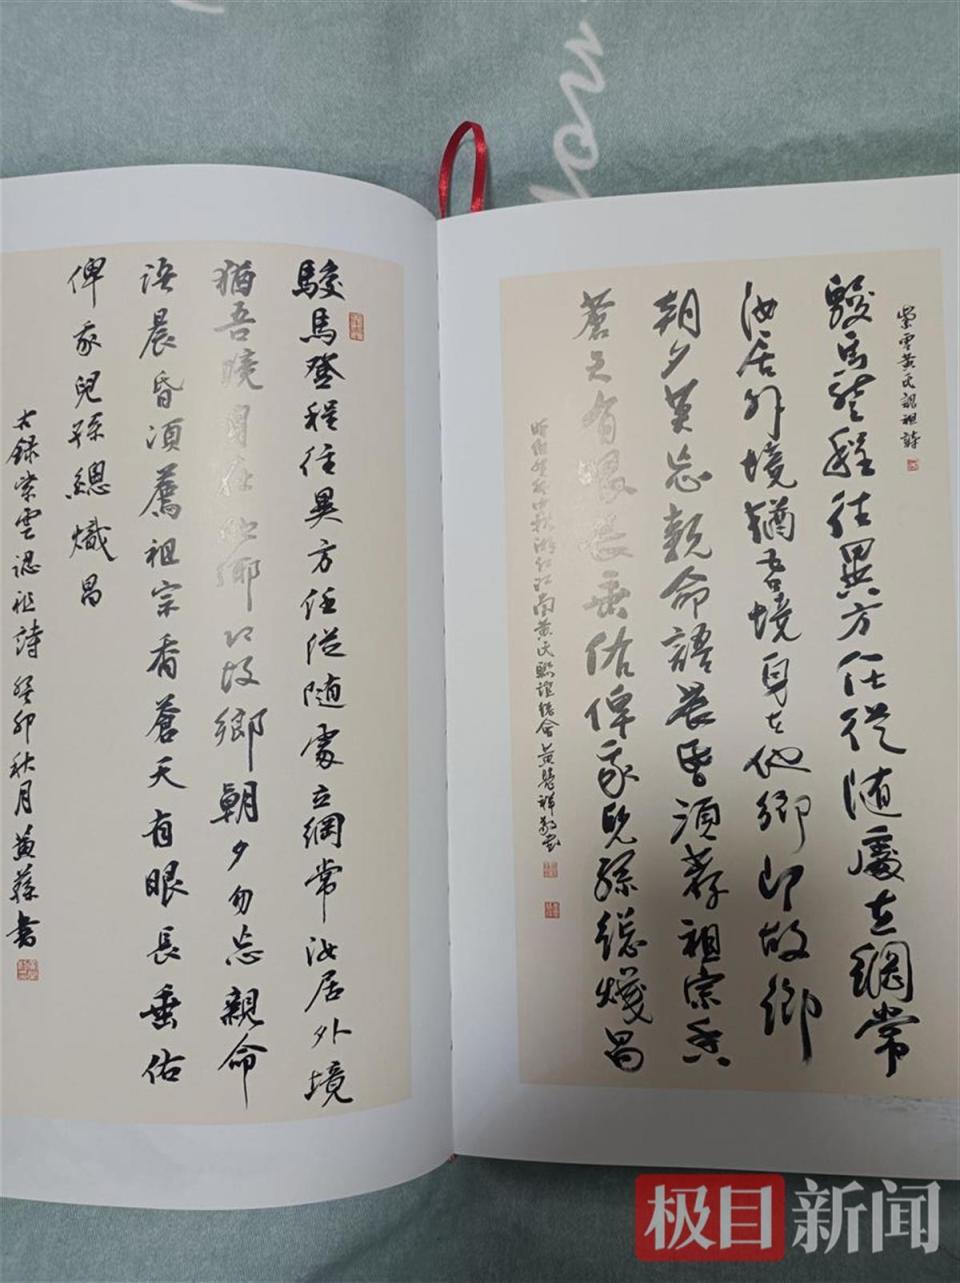 紫雲黃氏認祖詩
駿馬登程往異方任從隨處立綱常
汝居外境猶吾境身在他鄉即故鄉
朝夕莫忘親命語晨昏須荐祖宗香
蒼天有眼長垂佑俾我兒孫總熾昌
時維癸卯中秋浙江江南黃氏聯誼總會黃祥敬書
駿馬登程往異方任從隨處立綱常汝居外境
猶吾境身在他鄉即故鄉朝夕勿忘親命
語晨昏須薦祖宗香蒼天有眼長垂佑
俾我兒孫總熾昌
錄紫雲認祖詩 癸卯秋月 黃書
极目新闻